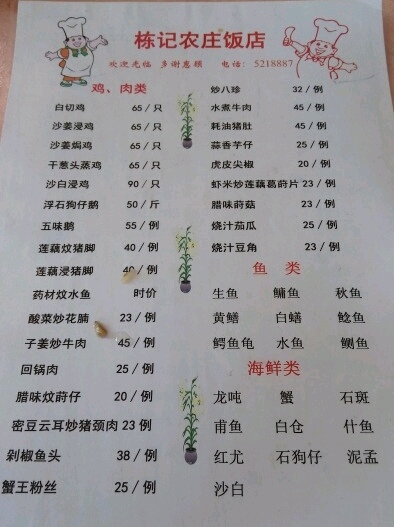 栋记农庄饭店
欢迎光临 多谢惠顾 电话: 5218887
鸡、肉类
白切鸡 65/只
沙姜浸鸡 65/只
沙姜焗鸡 65/只
干葱头蒸鸡 65/只
沙白浸鸡 90/只
浮石狗仔鹅 50/斤
五味鹅 55/例
莲藕炆猪脚 40/例
莲藕浸猪脚 40/例
药材炆水鱼 时价
酸菜炒花腩 23/例
子姜炒牛肉 45/例
回锅肉 25/例
腊味炆莳仔 20/例
密豆云耳炒猪颈肉 23例
剁椒鱼头 38/例
蟹王粉丝 25/例
炒八珍 32/例
水煮牛肉 45/例
耗油猪肚 45/例
蒜香芋仔 25/例
虎皮尖椒 20/例
虾米炒莲藕葛莳片 23/例
腊味莳菇 23/例
烧汁茄瓜 25/例
烧汁豆角 23/例
鱼 类
生鱼 鳙鱼 秋鱼
黄鳝 白鳝 鲶鱼
鳄鱼龟 水鱼 鲗鱼
海鲜类
龙吨 蟹 石斑
甫鱼 白仓 什鱼
红尤 石狗仔 泥孟
沙白